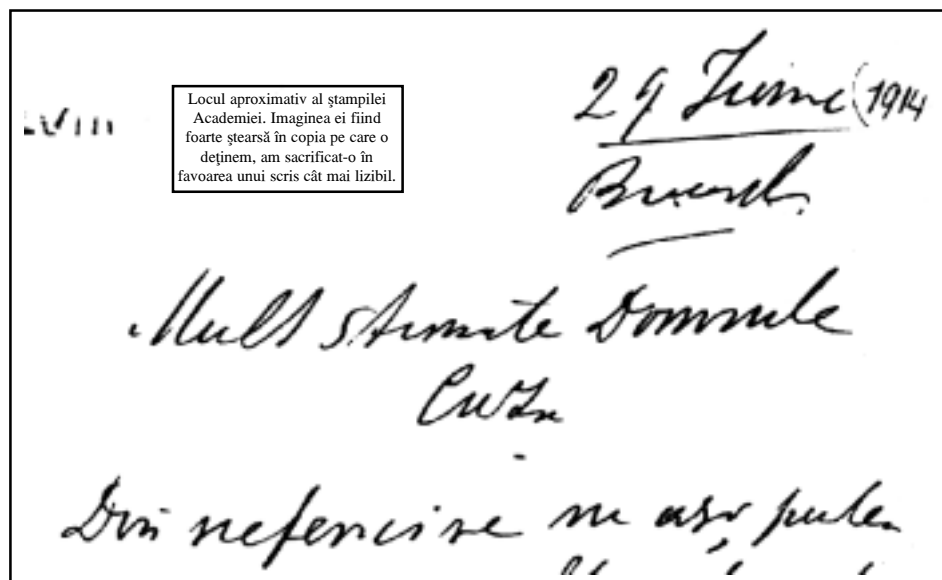 29 Iunie (1914
LVIII
Locul aproximativ al ştampilei
Academiei. Imaginea ei fiind
foarte ştearsă în copia pe care o
deţinem, am sacrificat-o în
favoarea unui scris cât mai lizibil.
Mult stimate Domnule
Cuza
Din nefericire nu aşi putea